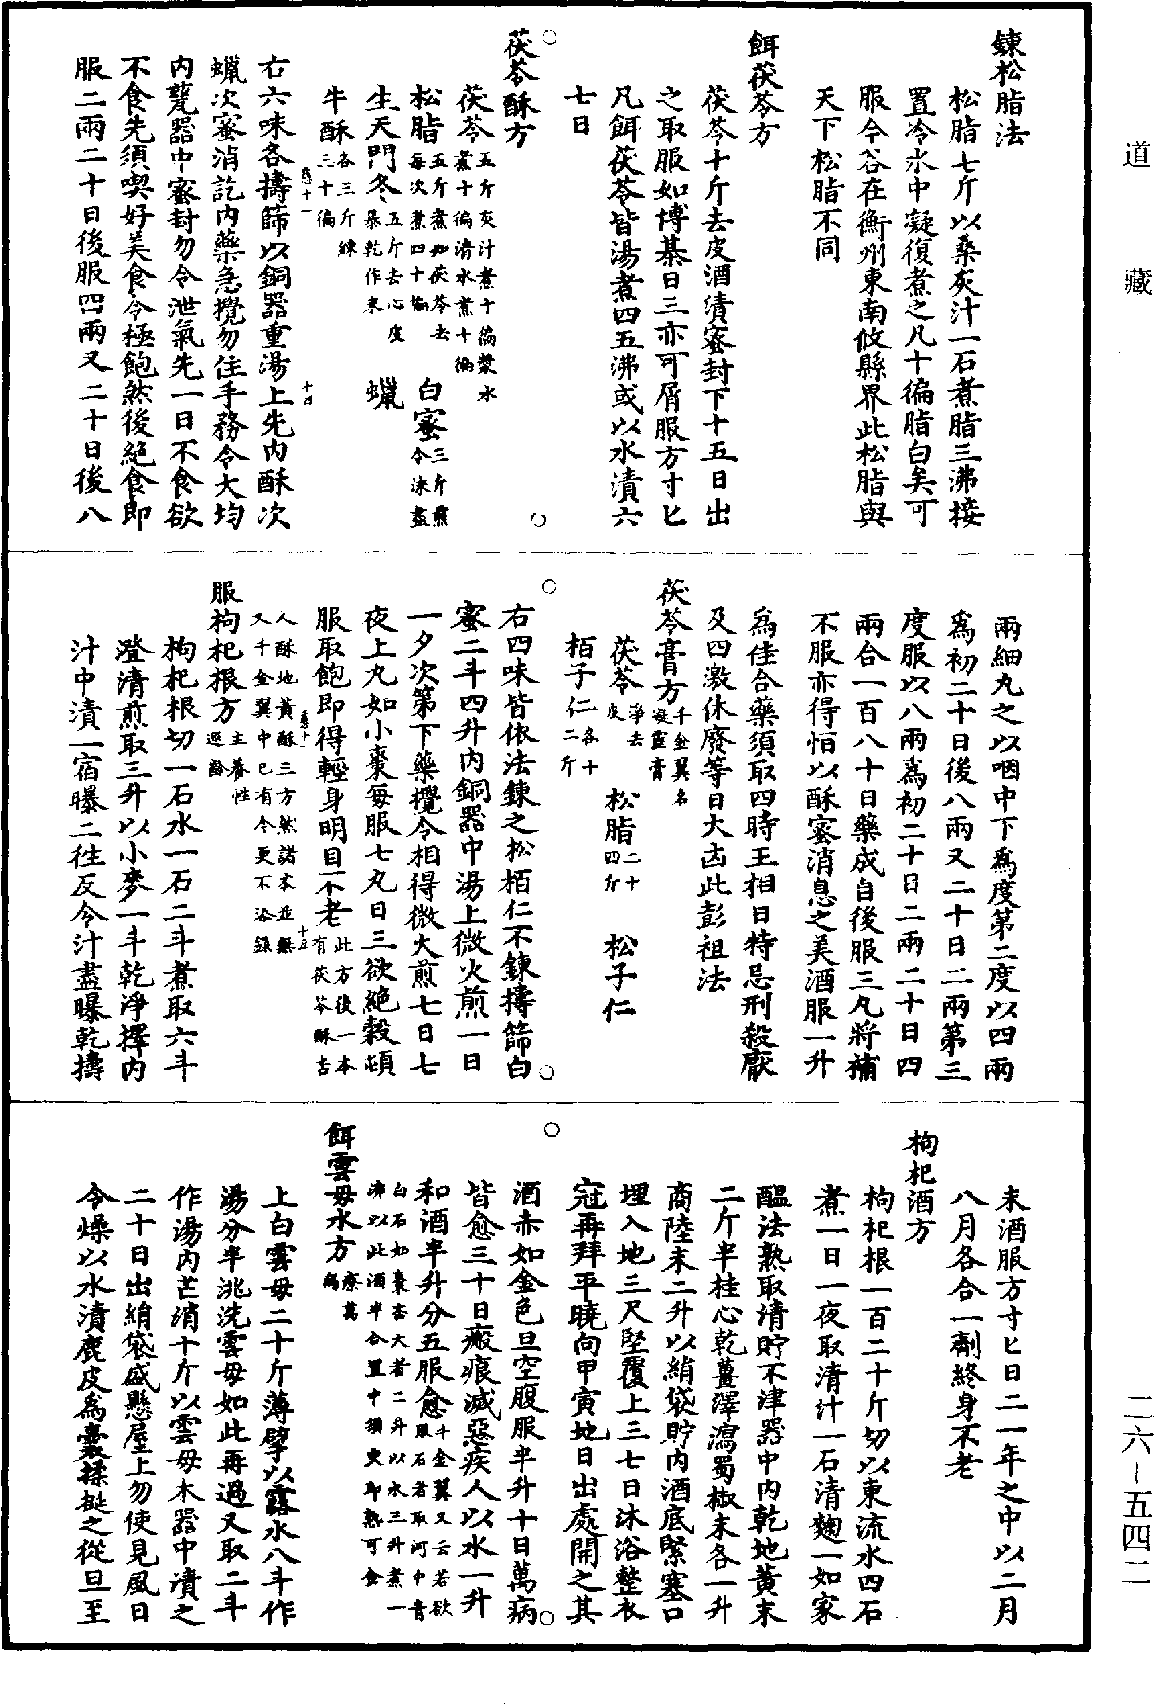 鍊松脂法
松脂七斤以桑灰汁一石煮脂三沸接
置冷水中凝復煮之凡十徧脂白矣可
服今谷在衡州東南攸縣界此松脂與
天下松脂不同
餌茯苓方
茯苓十斤去皮酒漬密封下十五日出
之取服如博棊日三亦可屑服方寸匕
凡餌茯苓皆湯煮四五沸或以水漬六
七日
茯苓酥方
茯苓五斤灰汁煮十徧漿水煮十徧清水煮十徧
松脂五斤煮如茯苓去每次煮四十徧 白蜜三斤煎令沫盡
生天門冬五斤去心皮暴乾作末 蠟
牛酥各三斤鍊三十徧
右六味各擣篩以銅器重湯上先内酥次
蠟次蜜消訖内藥急攪勿住手務令大均
内甕器中密封勿令泄氣先一日不食欲
不食先須喫好美食令極飽然後絶食即
服二兩二十日後服四兩又二十日後八
兩細丸之以咽中下爲度第二度以四兩
爲初二十日後八兩又二十日二兩第三
度服以八兩爲初二十日二兩二十日四
兩合一百八十日藥成自後服三丸將補
不服亦得恒以酥蜜消息之美酒服一升
爲佳合藥須取四時王相日特忌刑殺厭
及四激休廢等日大凶此彭祖法
茯苓膏方千金翼名凝靈膏
茯苓淨去皮 松脂二十四斤 松子仁
栢子仁各十二斤
右四味皆依法鍊之松栢仁不鍊擣篩白
蜜二斗四升内銅器中湯上微火煎一日
一夕次第下藥攪令相得微火煎七日七
夜上丸如小棗每服七丸日三欲絶穀頓
服取飽即得輕身明目不老此方後一本有茯苓酥杏
人酥地黃酥三方然諸本並無又千金翼中已有今更不添錄
服枸杞根方主養性遐齡
枸杞根切一石水一石二斗煮取六斗
澄清煎取三升以小麥一斗乾淨擇内
汁中漬一宿曝二往反令汁盡曝乾擣
末酒服方寸匕日二一年之中以二月
八月各合一劑終身不老
枸杞酒方
枸杞根一百二十斤切以東流水四石
煮一日一夜取清汁一石清麴一如家
醖法熟取清貯不津器中内乾地黄末
二斤半桂心乾薑澤瀉蜀椒末各一升
商陸末二升以絹袋貯内酒底緊塞口
埋入地三尺堅覆上三七日沐浴整衣
冠再拜平曉向甲寅地日出處開之其
酒赤如金色旦空腹服半升十日萬病
皆愈三十日瘢痕滅惡疾人以水一升
和酒半升分五服愈千金翼又云若欲服石者取河中青
白石如棗杏大者二升以水三升煮一沸以此酒半合置中須臾即熟可食
餌雲母水方療萬病
上白雲母二十斤薄擘以露水八斗作
湯分半洮洗雲母如此再過又取二斗
作湯内芒消十斤以雲母木器中漬之
二十日出絹袋盛懸屋上勿使見風日
令燥以水漬鹿皮爲囊揉挻之從旦至
道藏
二六－五四二